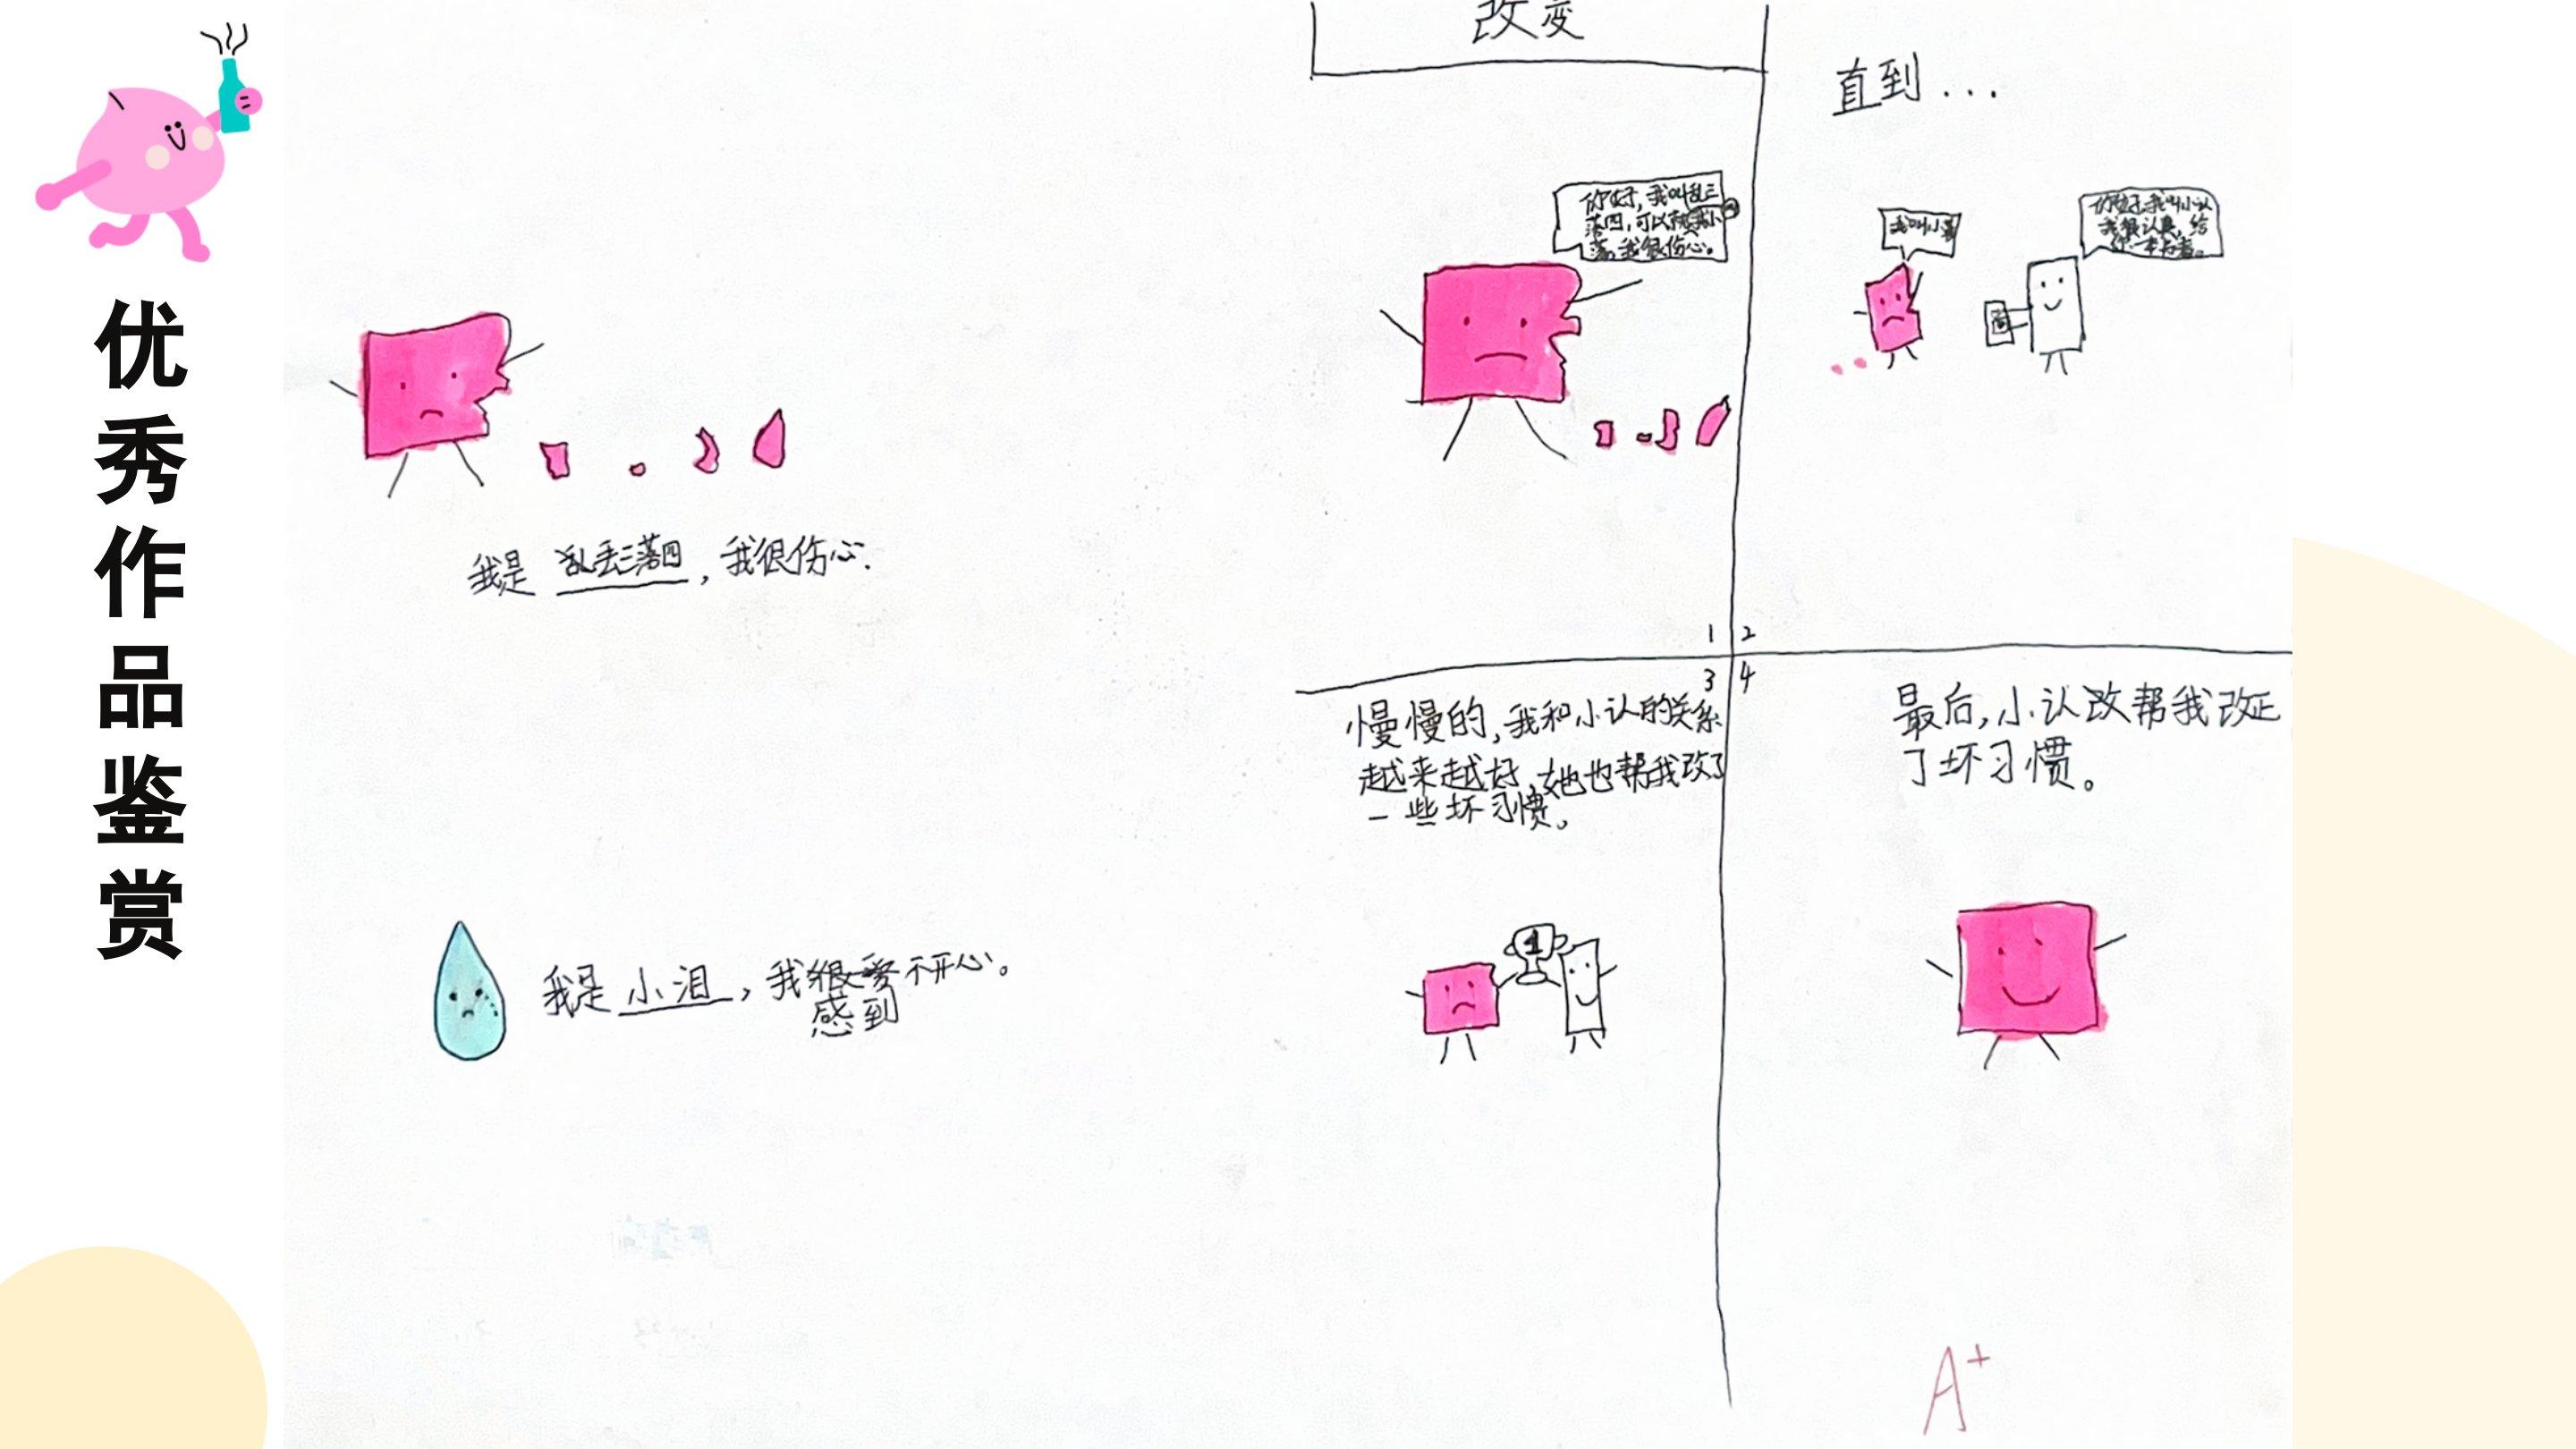 优秀作品鉴赏
我是 乱丢三落四，我很伤心.
我是 小泪，我很爱不开心。
感到
改变
你好，我叫乱三
落四，可以
落，我很伤心。
1
直到...
我叫小落
你好，我叫小认
我很认真，给
你一本书看。
2
3
慢慢的，我和小认的关系
越来越好，她也帮我改了
一些坏习惯。
1
4
最后，小认改帮我改正
了坏习惯。
A+